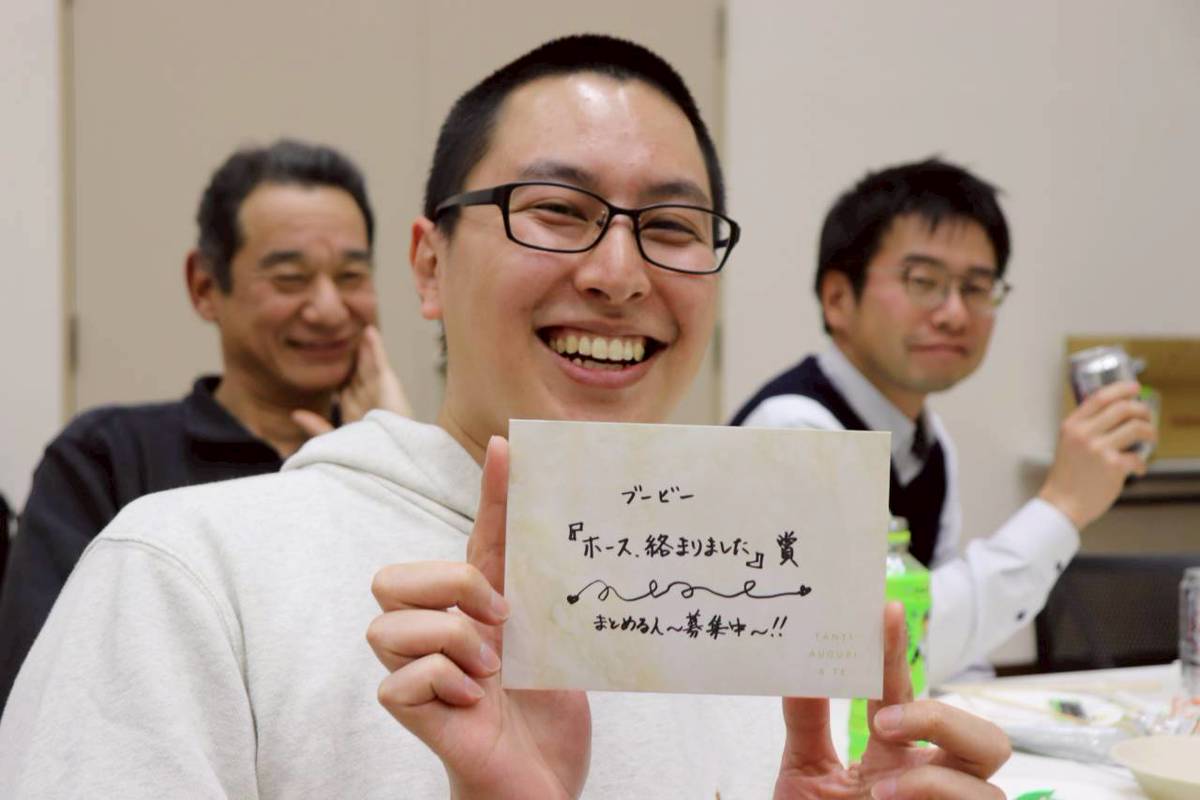 ブービー
『ホース、絡まりました』賞
まとめる人〜募集中〜!!
TANTI
AUGURI
A TE